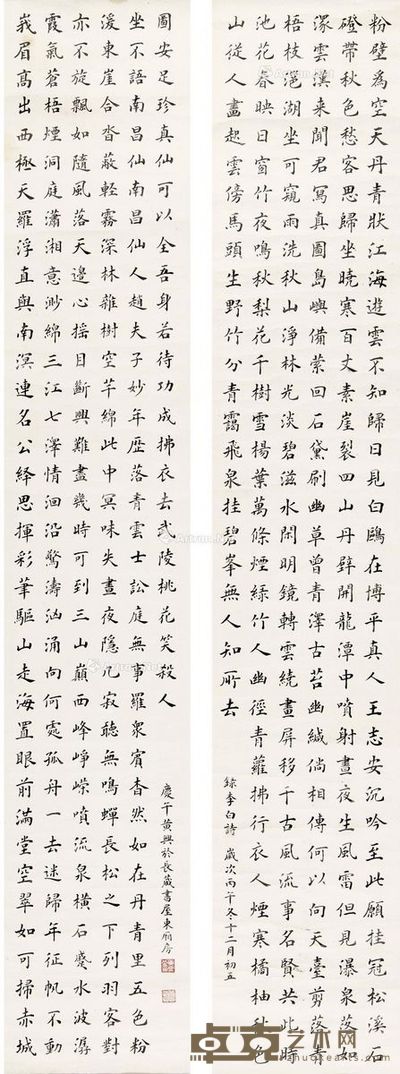 粉壁為空天丹青狀江海遊雲不知歸日見白鷗在博平真人王志安沉吟至此願挂冠松溪石
磴帶秋色愁客思歸坐曉寒百丈素崖裂四山丹壁開龍潭中噴射晝夜生風雷但見瀑泉落如
潨雲漢来聞君寫真圖島嶼備縈回石黛刷幽草曾青澤古苔幽緘倘相傳何以向天臺剪落青
梧枝邕湖坐可窺雨洗秋山淨林光淡碧滋水閑明鏡轉雲繞畫屏移千古風流事名賢共此時
池花春映日窗竹夜鳴秋梨花千樹雪楊葉萬條煙綠竹入幽徑青蘿拂行衣人煙寒橘柚秋色
山從人畫起雲傍馬頭生野竹分青靄飛泉挂碧峯無人知所去
錄李白詩 歲次丙午冬十二月初五
峩眉高出西極天羅浮直與南溟連名公繹思揮彩筆驅山走海置眼前滿堂空翠如可掃赤城
霞氣蒼梧煙洞庭瀟湘意渺綿三江七澤情洄沿驚濤洶涌向何處孤舟一去迷歸年征帆不動
亦不旋飄如隨風落天邊心搖目斷興難盡幾時可到三山巔西峰崢嶸噴流泉橫石蹙水波潺
湲東崖合沓蔽輕霧深林雜樹空芊綿此中冥昧失晝夜隱几寂聽無鳴蟬長松之下列羽客對
坐不語南昌仙南昌仙人趙夫子妙年歷落青雲士訟庭無事羅衆賓杳然如在丹青里五色粉
圖安足珍真仙可以全吾身若待功成拂衣去武陵桃花笑殺人
慶午黃興於長葳書屋東廂房